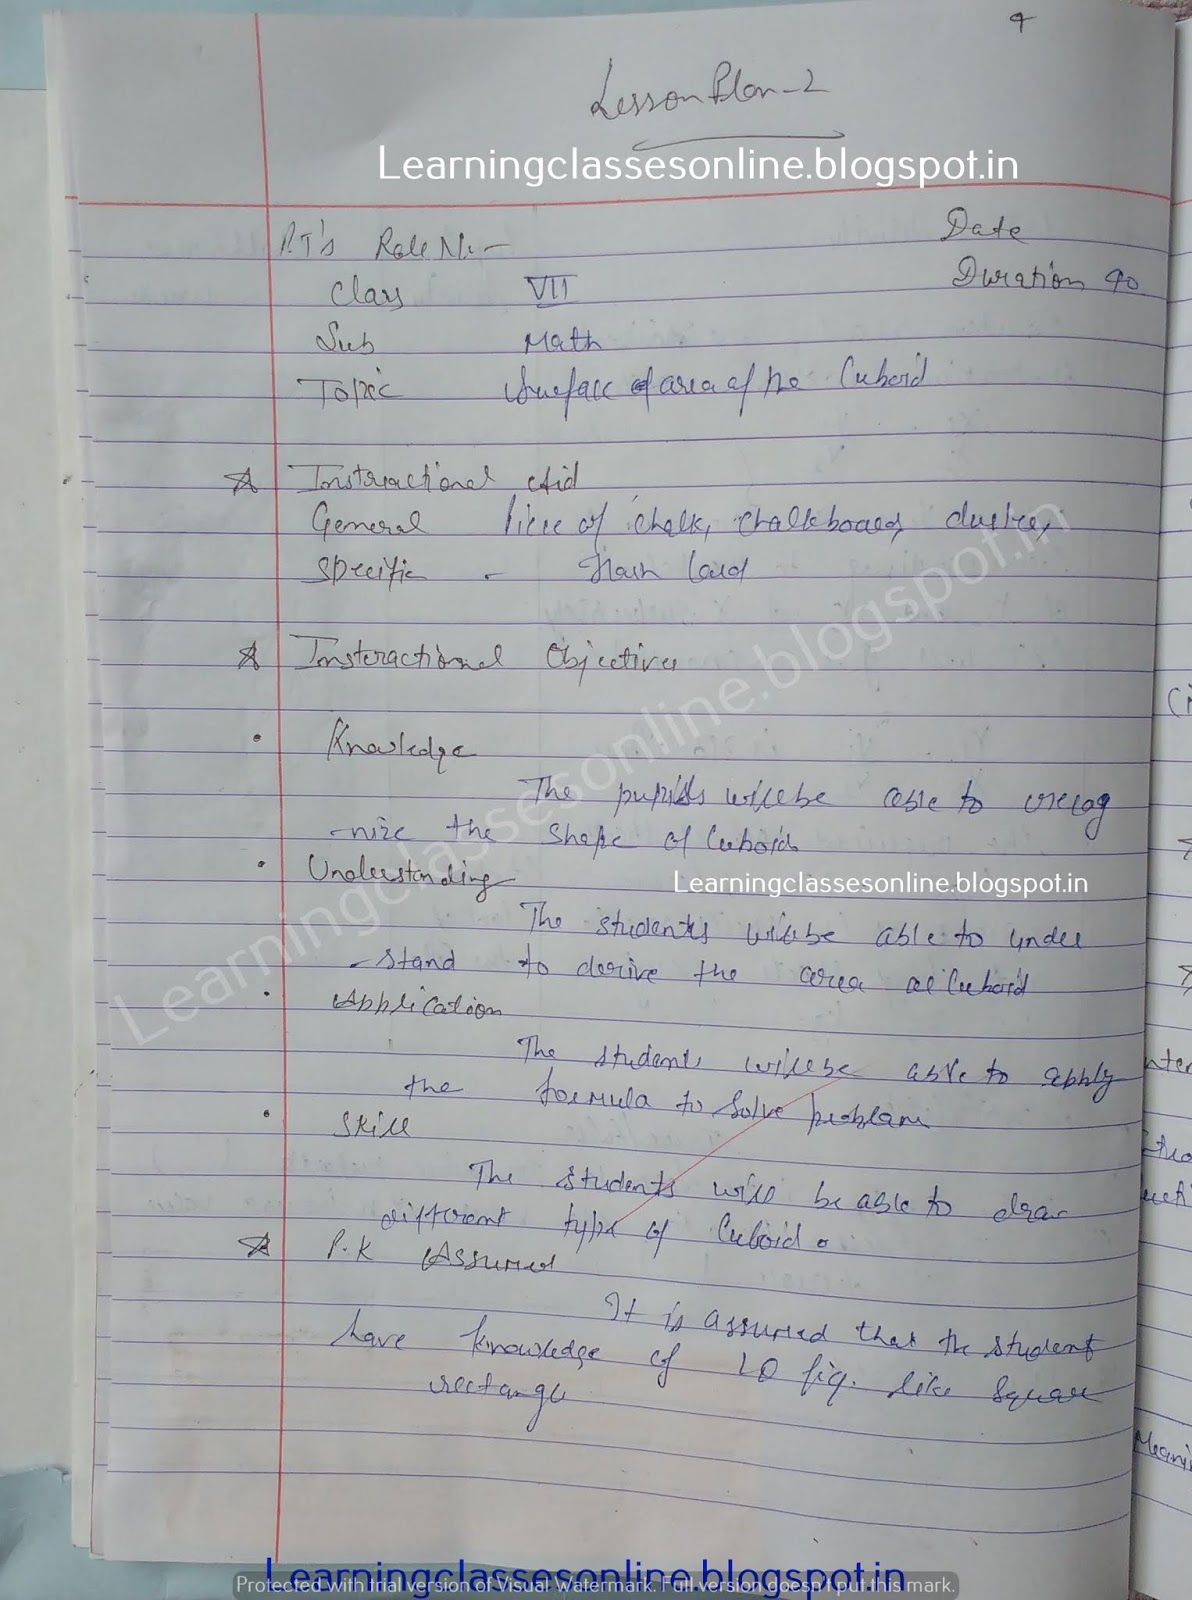 4
Lesson Plan-2
Learningclassesonline.blogspot.in
P.T's Role No:-
Date
Class VII
Duration 40
Sub Math
Topic Surface of area of the Cuboid
☆ Instractional Aid
General Piece of chalk, chalkboard, duster,
Specific - Flash Card
☆ Insteractional Objectives
• Knowledge
The pupils will be able to recog
-nize the shape of Cuboid
• Understanding
Learningclassesonline.blogspot.in
The students will be able to under
-stand to derive the area of Cuboid
• Application
The students will be able to apply
the formula to solve problem
• Skill
The students will be able to draw
different type of Cuboid.
☆ P.K Assumed
It is assumed that the student
have knowledge of 2D fig. like square
rectangle
Learningclassesonline.blogspot.in
Learningclassesonline.blogspot.in
Protected with trial version of Visual Watermark. Full version doesn't put this mark.